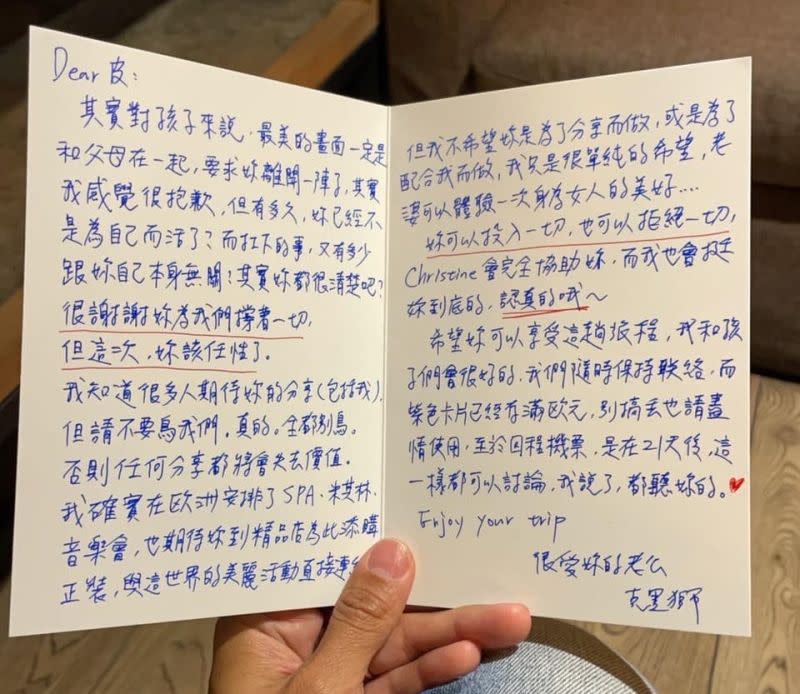 Dear 皮:
其實對孩子來說,最美的畫面一定是
和父母在一起,要求妳離開一陣子,其實
我感覺很抱歉,但有多久,妳已經不
是為自己而活了?而扛下的事,又有多少
跟妳自己本身無關?其實妳都很清楚吧?
很謝謝妳為我們撐著一切,
但這次,妳該任性了。
我知道很多人期待妳的分享(包括我),
但請不要鳥我們。真的。全都別鳥。
否則任何分享都將會失去價值。
我確實在歐洲安排了SPA、米其林、
音樂會,也期待妳到精品店為此添購
正裝,與這世界的美麗活動直接連
但我不希望妳是為了分享而做,或是為了
配合我而做,我只是很單純的希望,老
婆可以體驗一次身為女人的美好....
妳可以投入一切,也可以拒絕一切,
Christine會完全協助妳,而我也會挺
妳到底的,認真的哦~
希望妳可以享受這趟旅程,我和孩
子們會很好的,我們隨時保持聯絡,而
紫色卡片已經存滿歐元,別搞丟也請盡
情使用,至於回程機票,是在21天後,這
一樣都可以討論,我說了,都聽妳的。♥
Enjoy your trip
很愛妳的老公
克里獅